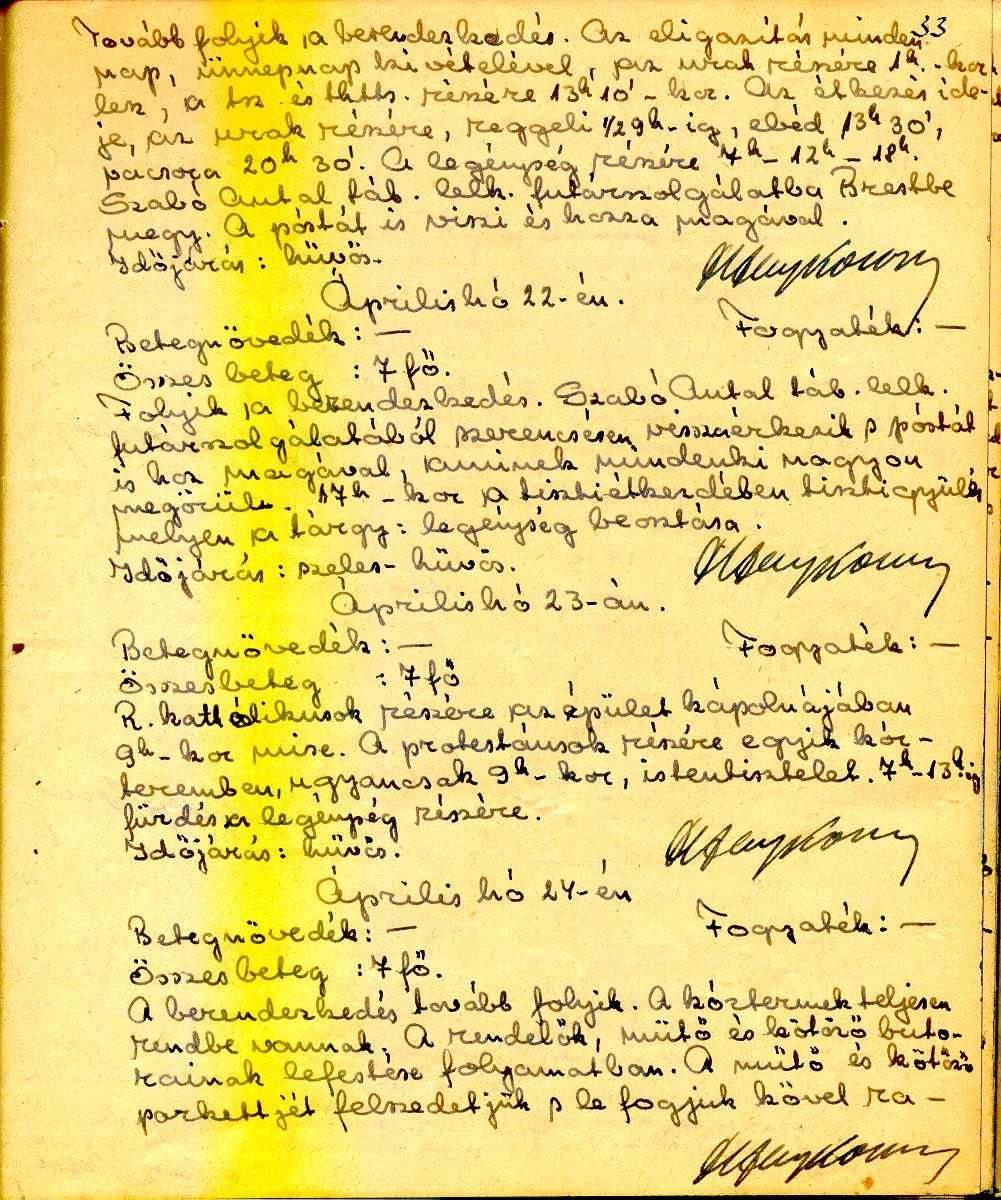 33
Tovább folyik a berendezkedés. Az eligazítás minden
nap, ünnepnap kivételével, az urak részére 1h.-kor
lesz, a tsz. és thtts. részére 13h 10'-kor. Az étkezés ide-
je, az urak részére, reggeli 1/29h-ig, ebéd 13h 30',
vacsora 20h 30'. A legénység részére 7h-12h-18h.
Szabó Antal táb. lelk. futárszolgálatba Brestbe
megy. A póstát is viszi és hozza magával.
Időjárás: hűvös.
Április hó 22-én.
Betegnövedék: — Fogyaték: —
Összes beteg : 7 fő.
Folyik a berendezkedés. Szabó Antal táb. lelk.
futárszolgálatából szerencsésen visszaérkezik s póstát
is hoz magával, aminek mindenki nagyon
megörült. 17h-kor a tisztiétkezdében tisztigyülés
melyen a tárgy: legénység beosztása.
Időjárás: szeles-hűvös.
Április hó 23-án.
Betegnövedék: — Fogyaték: —
Összesbeteg : 7 fő
R. kathólikusok részére az épület kápolnájában
9h-kor mise. A protestánsok részére egyik kór-
teremben, ugyancsak 9h-kor, istentisztelet. 7h-13h.ig
fürdés a legénység részére.
Időjárás: hűvös.
Április hó 24-én
Betegnövedék: — Fogyaték: —
Összesbeteg : 7 fő.
A berendezkedés tovább folyik. A kórtermek teljesen
rendbe vannak. A rendelők, műtő és kötöző buto-
rainak lefestése folyamatban. A műtő és kötöző
parkettjét felszedetjük s le fogjuk kövel ra-